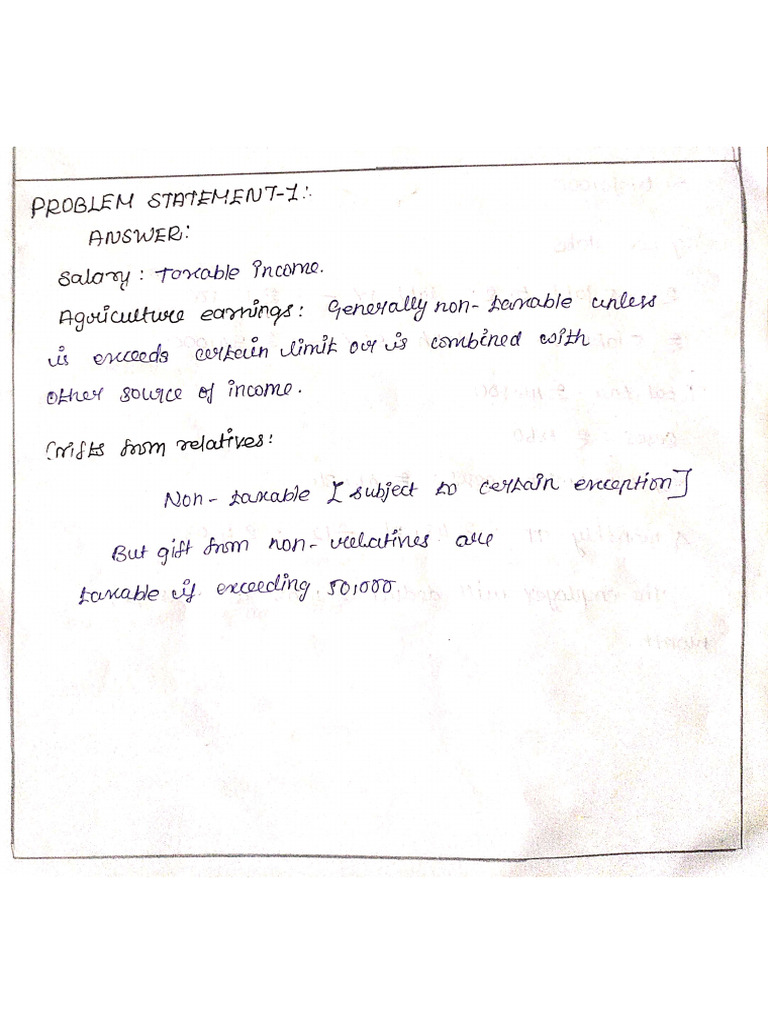 PROBLEM STATEMENT-1:-
ANSWER:
Salary: Taxable income.
Agriculture earnings: Generally non-taxable unless
is exceeds certain limit or is combined with
other source of income.
Gifts from relatives:
Non-taxable [subject to certain exception]
But gift from non-relatives are
taxable if exceeding 50,000